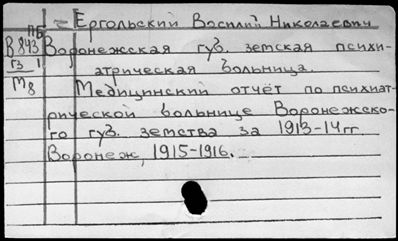 ПБ
– Ергольский Василий Николаевич
В 843 Воронежская губ. земская психи-
гз 1 атрическая больница.
М8 Медицинский отчёт по психиат-
рической больнице Воронежско-
го губ. земства за 1913-14 гг.
Воронеж, 1915-1916.